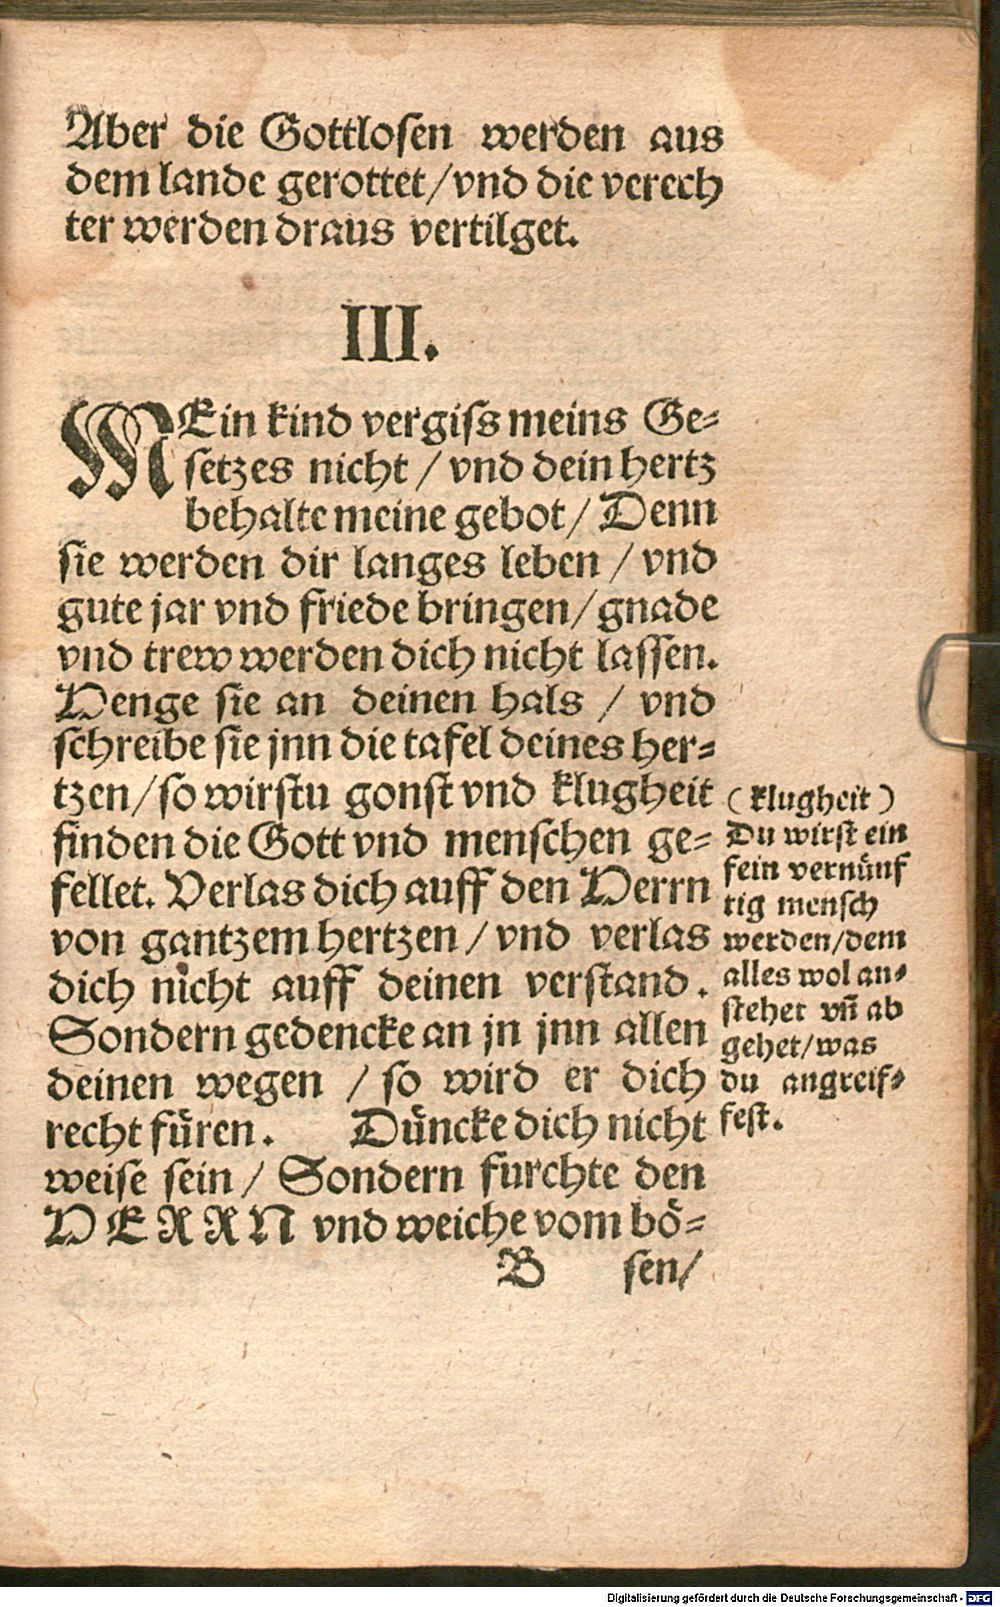 Aber die Gottlosen werden aus
dem lande gerottet/vnd die verech
ter werden draus vertilget.
III.
MEin kind vergiss meins Ge-
setzes nicht / vnd dein hertz
behalte meine gebot/ Denn
sie werden dir langes leben / vnd
gute jar vnd friede bringen/ gnade
vnd trew werden dich nicht lassen.
Henge sie an deinen hals / vnd
schreibe sie jnn die tafel deines her-
tzen/so wirstu gonst vnd klugheit
finden die Gott vnd menschen ge-
fellet. Verlas dich auff den Herrn
von gantzem hertzen/vnd verlas
dich nicht auff deinen verstand.
Sondern gedencke an jn jnn allen
deinen wegen / so wird er dich
recht füren. Düncke dich nicht
weise sein/ Sondern furchte den
HERRN vnd weiche vom bö-
B sen/
(klugheit)
Du wirst ein
fein vernünf
tig mensch
werden/dem
alles wol an-
stehet vn̄ ab
gehet/was
du angreif-
fest.
Digitalisierung gefördert durch die Deutsche Forschungsgemeinschaft - DFG